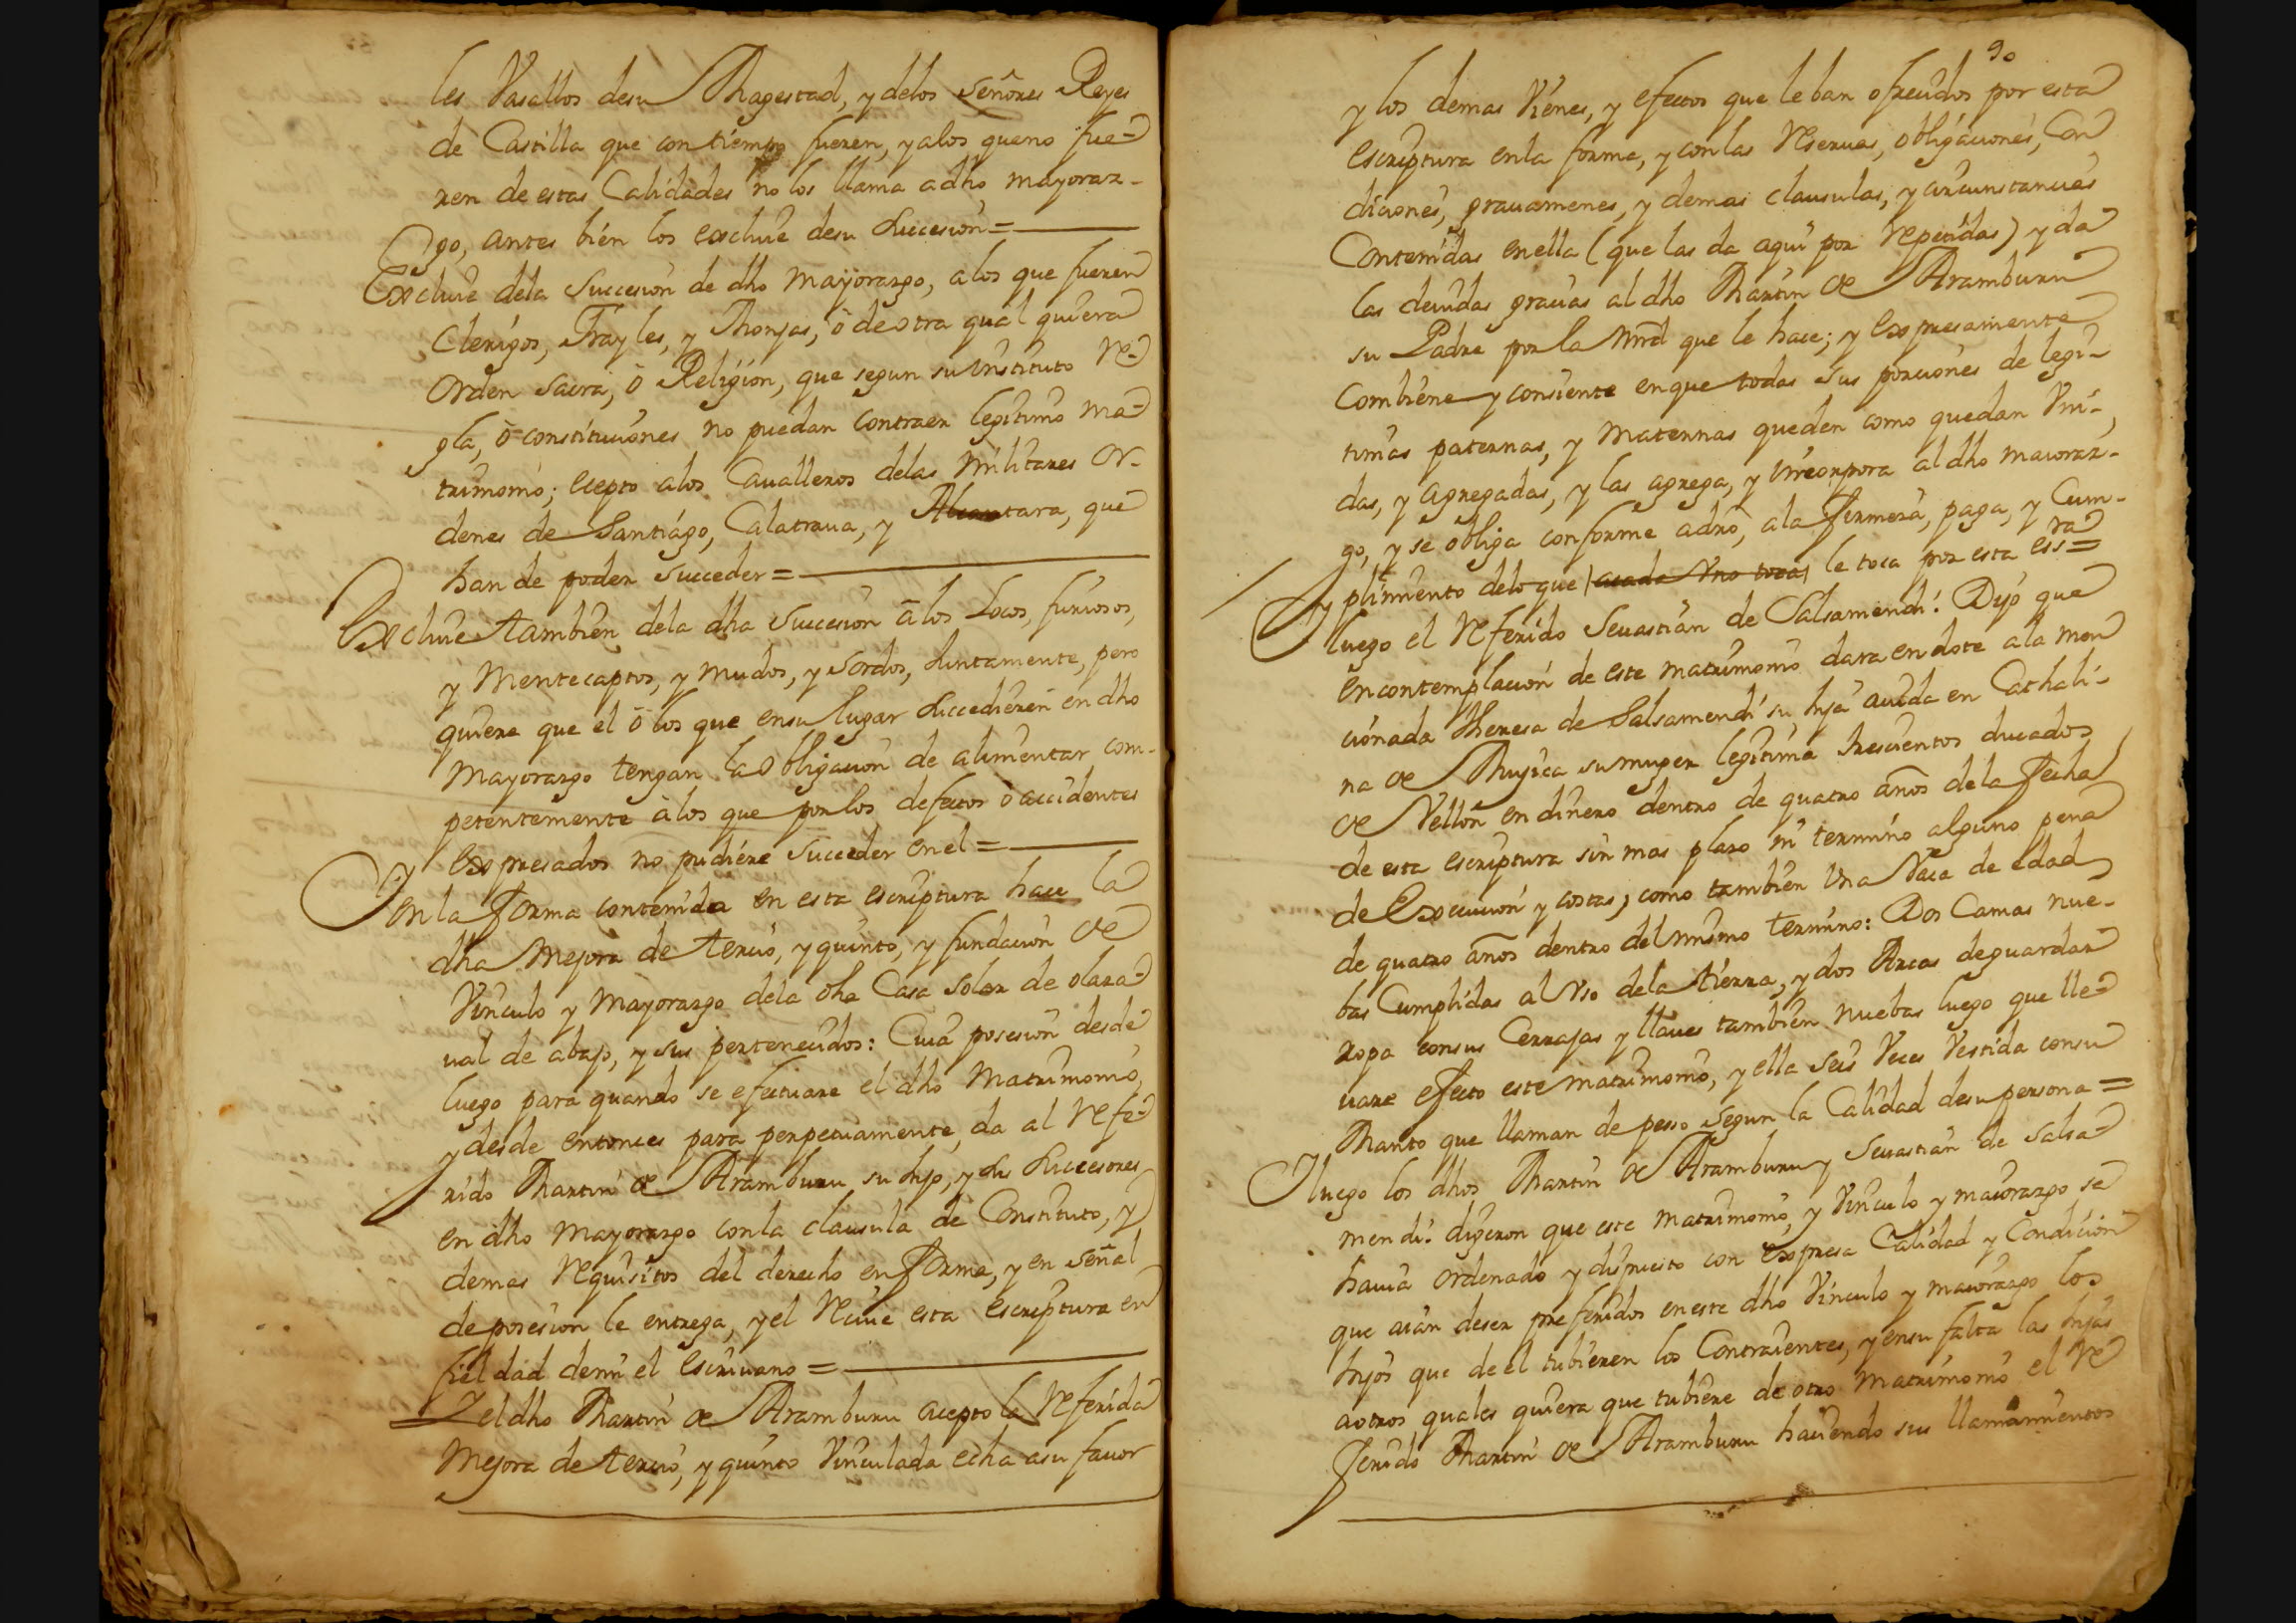 les Vasallos desu Magestad, y delos Señores Reyes
de Castilla que con tiempo fueren, y alos queno fue-
ren de estas Calidades no los llama a dho mayoraz-
go, antes bien los excluie desu Succesion =
Excluie dela Succesion de dho Mayorazgo, a los que fueren
Clerigos, Frayles, y Monjas, ò de otra qual quiera
Orden Sacra, ò Religion, que segun su Instituto Re-
gla, ò constituciones no puedan contraer legitimo ma-
trimonio; ecepto alos Caualleros delas Militares Or-
denes de Santiago, Calatraua, y Alcantara, que
han de poder succeder =
Excluie tambien dela dha Succesion à los Locos, furiosos,
y Mentecaptos, y mudos, y sordos, Juntamente, pero
quiere que el ò los que ensu lugar Succedieren en dho
Mayorazgo tengan la obligacion de alimentar com-
petentemente à los que por los defectos ò accidentes
expresados no pudiere succeder enel =
Y en la forma contenida en esta escriptura hace la
dha Mejora de tercio, y quinto, y fundacion de
Vinculo y Mayorazgo dela dha Casa Solar de olaza-
ual de abajo, y sus pertenecidos: Cuia posesion desde
luego para quando se efectuare el dho Matrimonio,
y desde entonces para perpetuamente, da al Refe-
rido Martin de Aramburu su hijo, y sus Succesores
en dho Mayorazgo con la clausula de Constituto, y
demas Requisitos del derecho en forma, y en Señal
de posesion le entrega, y el Reciue esta escriptura en
fieldad demi el escriuano =
Y el dho Martin de Aramburu acepto la Referida
Mejora de tercio, y quinto Vinculada echa asu fauor
90
y los demas Vienes, y efectos que le ban ofrecidos por esta
escriptura enla forma, y con las Reseruas, obligaciones, Con
diciones, grauamenes, y demas clausulas, y circunstancias
Contenidas en ella (que las da aqui por Repetidas) y da
las deuidas gracias al dho Martin de Aramburu
su Padre por la Mrd que le hace; y expresamente
Combiene y consiente enque todas sus porciones de legi-
timas paternas, y maternas queden como quedan Vni-
das, y agregadas, y las agrega, y incorpora al dho maioraz-
go, y se obliga conforme a dro, ala firmeza, paga, y Cum-
plimiento delo que acada Vno toca le toca por esta essra =
Y luego el Referido Seuastian de Salsamendi: Dijo que
en contemplacion de este matrimonio dara en dote ala men
cionada Theresa de Salsamendi su hija auida en Cathali-
na de Mugica su muger legitima trescientos ducados
de Vellon en dinero dentro de quatro años dela fecha
de esta escriptura sin mas plazo ni termino alguno pena
de Execucion y costas; como tambien Vna Vaca de edad
de quatro años dentro del mismo termino: Dos Camas nue-
bas Cumplidas al Vso dela tierra, y dos Arcas de guardar
ropa con sus Cerrajas y llaues tambien nuebas luego que lle-
uare efecto este matrimonio, y ella seis Veces Vestida consu
Manto que llaman de peso segun la Calidad desu persona =
Y luego los dhos Martin de Aramburu y Seuastian de Salsa-
mendi: digeron que este matrimonio, y Vinculo y maiorazgo se
hauia ordenado y dispuesto con expresa Calidad y Condicion
que aian deser preferidos en este dho Vinculo y maiorazgo los
hijos que de el tubieren los Contraientes, y ensu falta las hijas
aotros quales quiera que tubiere de otro Matrimonio el Re
ferido Martin de Aramburu haciendo sus llamamientos